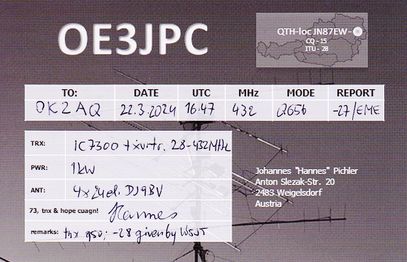 OE3JPC
QTH-loc JN87EW
CQ - 15
ITU - 28
TO: DATE UTC MHz MODE REPORT
OK2AQ 22.3.2024 16:47 432 Q65b -27/EME
TRX: IC7300 + xvrtr. 28-432MHz
PWR: 1kW
ANT: DJ9BV
73, tnx & hope cuagn! Hannes
remarks: tnx qso; -28 given by WSJT
Johannes "Hannes" Pichler
Anton Slezak-Str. 20
2483 Weigelsdorf
Austria